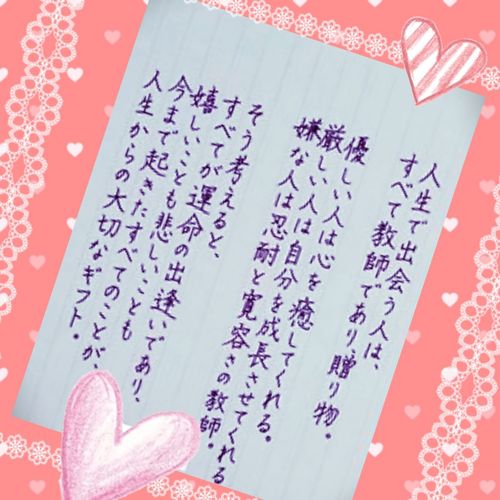 人生で出会う人は、
すべて教師であり贈り物。
優しい人は心を癒してくれる。
厳しい人は自分を成長させてくれる
嫌な人は忍耐と寛容さの教師。
そう考えると、
すべてが運命の出逢いであり、
嬉しいことも悲しいことも
今まで起きたすべてのことが、
人生からの大切なギフト。